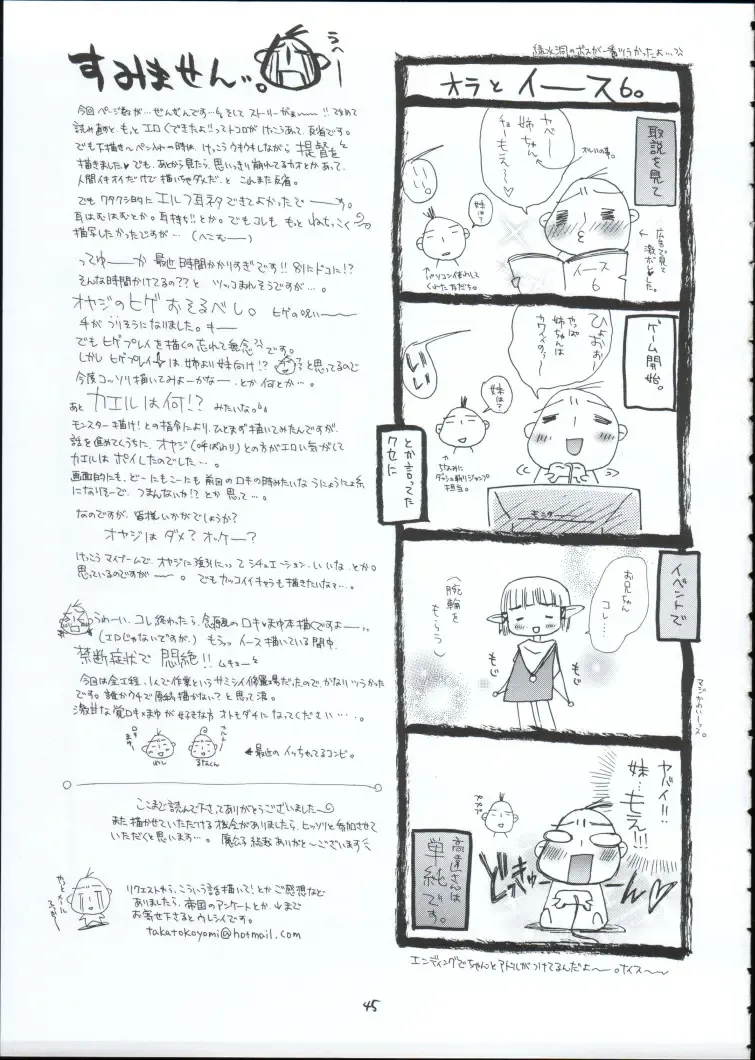 すみません…。
うへー
今回ページ数が…ぜんぜんです…そしてストーリーがぁー!!改めて
読み直すと、もっとエロくできたよ!!ってトコロがけっこうあって、反省です。
でも下描き〜ペン入れの時は、けっこうウキウキしながら提督を
描きました♥でも、あとから見たら、思いっきり崩れてるカオとかあって、
人間イキオイだけで描いちゃダメだ。と これまた反省。
でもワタクシ的にエルフ耳ネタできてよかったでーーす。
耳はむはむとか。耳持ち!!とか。でもコレも もっとねちっこく
描写したかったですが…(へこむー)
ってゆーーか最近時間かかりすぎです!!別にドコに!?
そんな時間かけてるの??と ツッコまれそうですが…。
オヤジのヒゲおそるべし。ヒゲの呪いーーー
でもヒゲプレイを描くの忘れて無念です。
しかしヒゲプレイは、姉より妹向け!?と思ってるので
今度コッソリ描いてみよーかなー、とか何とか…。
あと カエルは何!?みたいな。
モンスター描け!との指令により、ひとまず描いてみたんですが、
話を進めてくうちに、オヤジ(呼ばわり)との方がエロい気がして
カエルはポイしたのでした…。
画面的にも、どーにもこーにも前回のロキの時みたいなうにょうにょ系
になりそーで、つまんないか!?とか思って…。
なのですが、皆様いかがでしょうか?
オヤジはダメ?オッケー?
けっこうマイブームで、オヤジに強引にってシチュエーション、いいな、とか。
思っているのですがーー。でもカッコイイキャラも描きたいなァ…。
うわーい、コレ終わったら、念願のロキ×まゆ本描くですよーー
(エロじゃないですが、)もうっイース描いている間中、
禁断症状で悶絶!!ムキュー
今回は全工程、1人で作業というサミシイ修羅場だったので、かなりツラかった
です。誰かウチで原稿描かない?と思って涙。
激甘な覚ロキ×まゆが好きな方オトモダチになってください…。
←最近のイッちゃてるコンビ。
ここまで読んで下さってありがとうございました〜
また描かせていただける機会がありましたら、ヒッソリと参加させて
いただくと思います…。
リクエストやら、こういう話描いて!とかご感想など
ありましたら、帝国のアンケートとか、↓まで
お寄せ下さるとウレシイです。
takatokoyomi@hotmail.com
オラとイース6。
取説を見て
ヤベー
姉ちゃん
チョーもえ〜♡
いい。
妹は?
イース
6
広告で見て
ゲーム開始。
ひょおぉー
やっぱ
姉ちゃんは
カワえのぅー
いい
妹は?
ちなみに
ダッシュ斬りジャンプ
担当。
モニター
とか言ってた
クセに
イベントで
お兄ちゃん
コレ…
(腕輪を
もらう)
もじ
もじ
マジかわいーッス。
ヤバイ!!
妹…もえ!!!
どきゅーーん♥
高遠さんは
単純です。
エンディングでちゃんとアドルがつけてるんだよーー。ナイス〜〜
45